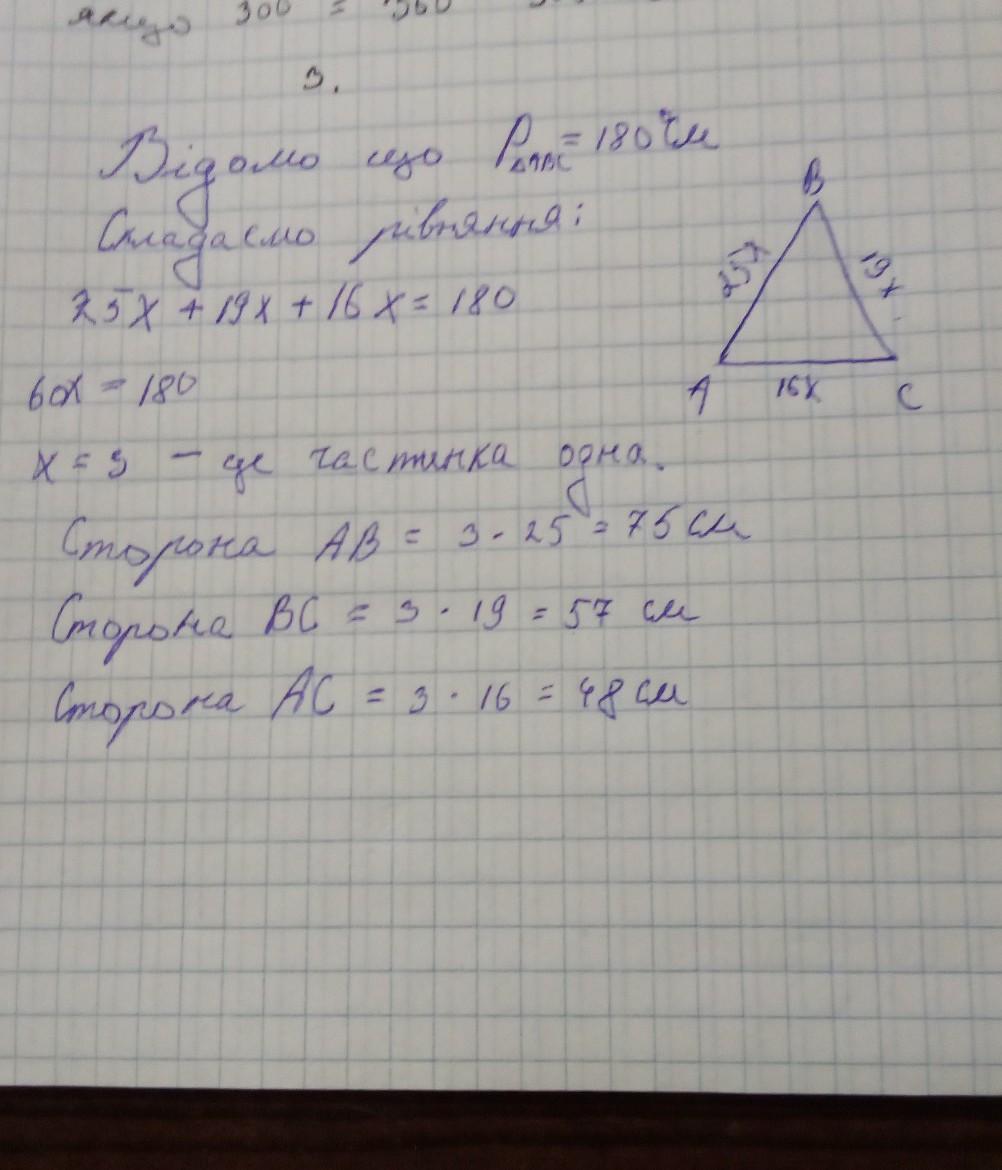 якщо 300 = 360
3.
Відомо що P△ABC = 180 см
Складаємо рівняння:
25x + 19x + 16x = 180
60x = 180
x = 3 – це частинка одна.
Сторона AB = 3 · 25 = 75 см
Сторона BC = 3 · 19 = 57 см
Сторона AC = 3 · 16 = 48 см
B
25x
19x
A
16x
C